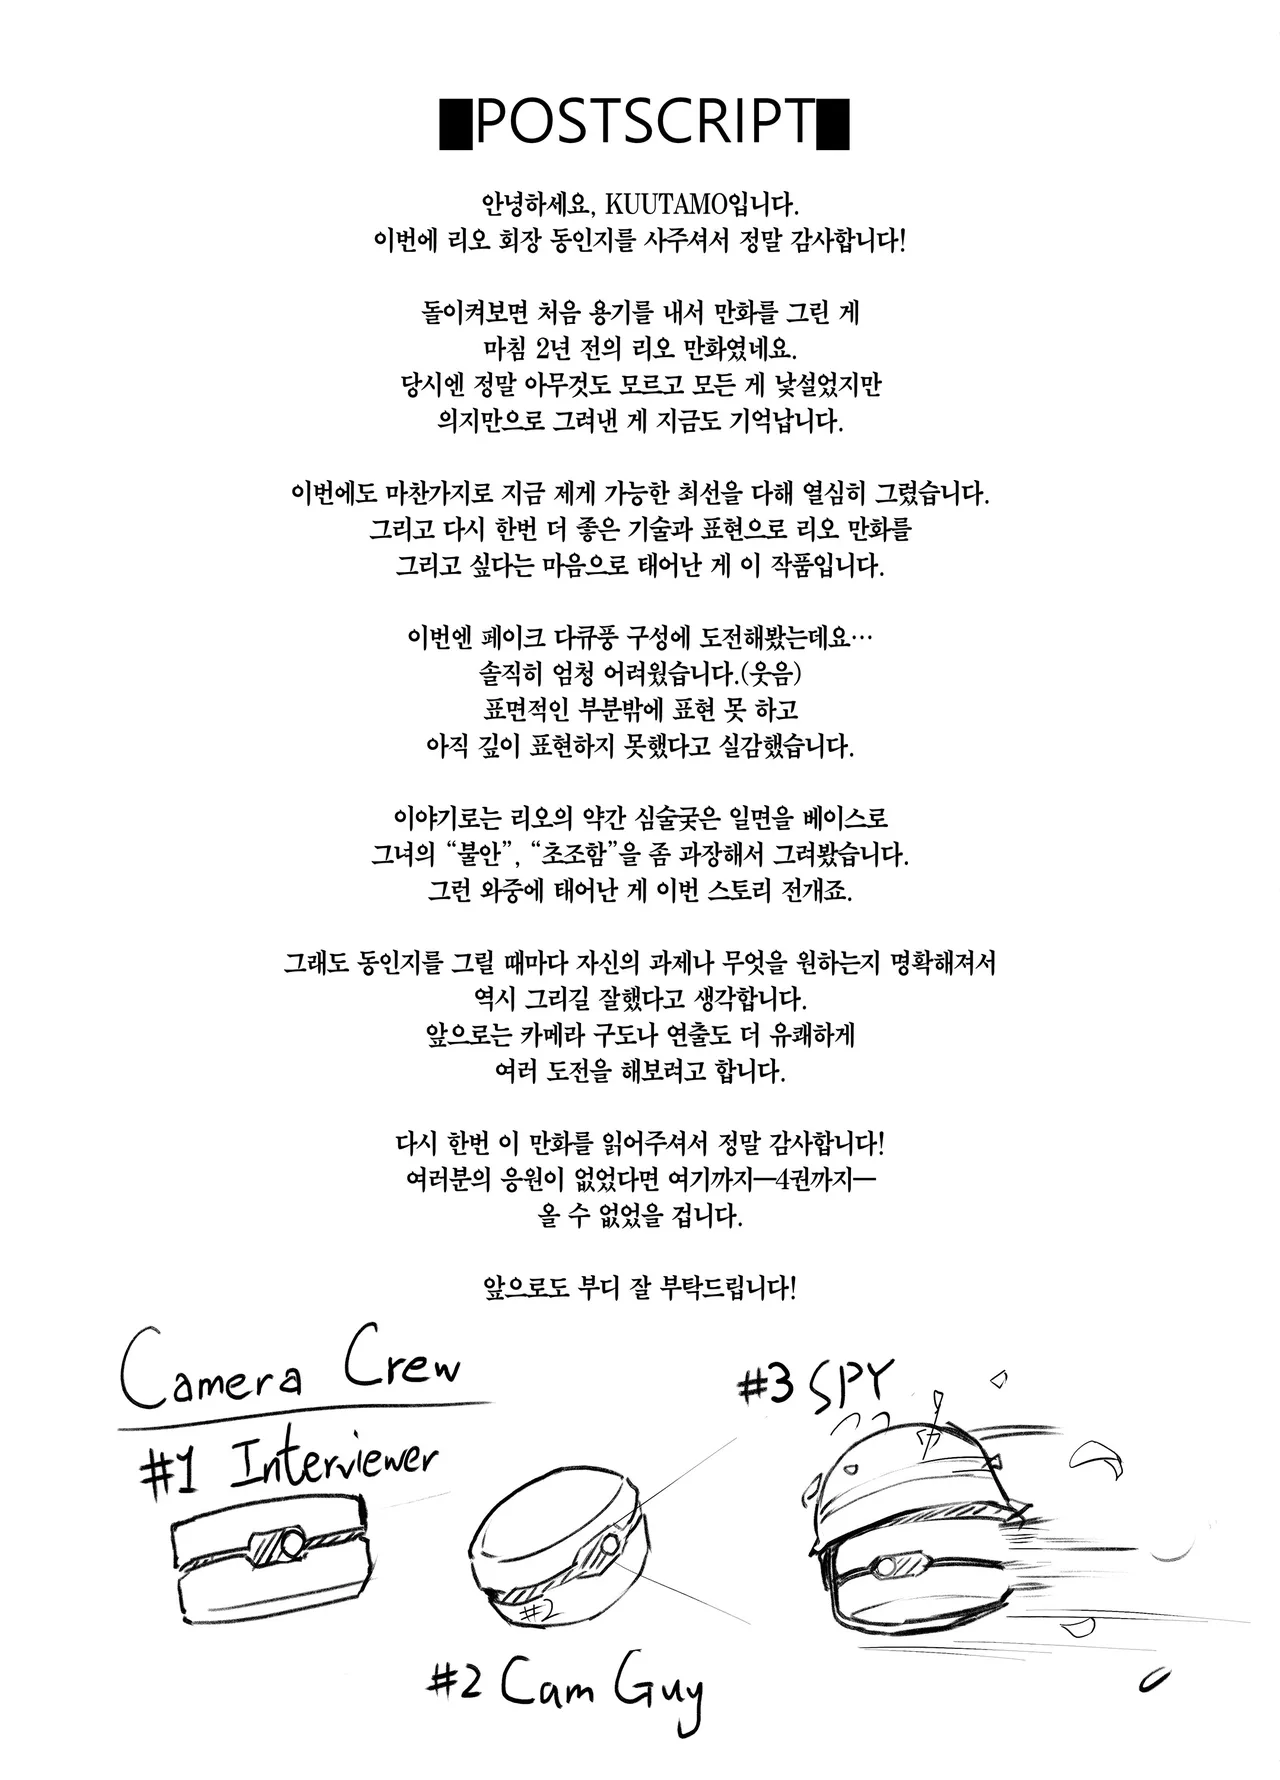 █POSTSCRIPT█
안녕하세요, KUUTAMO입니다.
이번에 리오 회장 동인지를 사주셔서 정말 감사합니다!
돌이켜보면 처음 용기를 내서 만화를 그린 게
마침 2년 전의 리오 만화였네요.
당시엔 정말 아무것도 모르고 모든 게 낯설었지만
의지만으로 그려낸 게 지금도 기억납니다.
이번에도 마찬가지로 지금 제게 가능한 최선을 다해 열심히 그렸습니다.
그리고 다시 한번 더 좋은 기술과 표현으로 리오 만화를
그리고 싶다는 마음으로 태어난 게 이 작품입니다.
이번엔 페이크 다큐풍 구성에 도전해봤는데요…
솔직히 엄청 어려웠습니다.(웃음)
표면적인 부분밖에 표현 못 하고
아직 깊이 표현하지 못했다고 실감했습니다.
이야기로는 리오의 약간 심술궂은 일면을 베이스로
그녀의 “불안”, “초조함”을 좀 과장해서 그려봤습니다.
그런 와중에 태어난 게 이번 스토리 전개죠.
그래도 동인지를 그릴 때마다 자신의 과제나 무엇을 원하는지 명확해져서
역시 그리길 잘했다고 생각합니다.
앞으로는 카메라 구도나 연출도 더 유쾌하게
여러 도전을 해보려고 합니다.
다시 한번 이 만화를 읽어주셔서 정말 감사합니다!
여러분의 응원이 없었다면 여기까지—4권까지—
올 수 없었을 겁니다.
앞으로도 부디 잘 부탁드립니다!
Camera Crew
#1 Interviewer
#2
#2 Cam Guy
#3 SPY